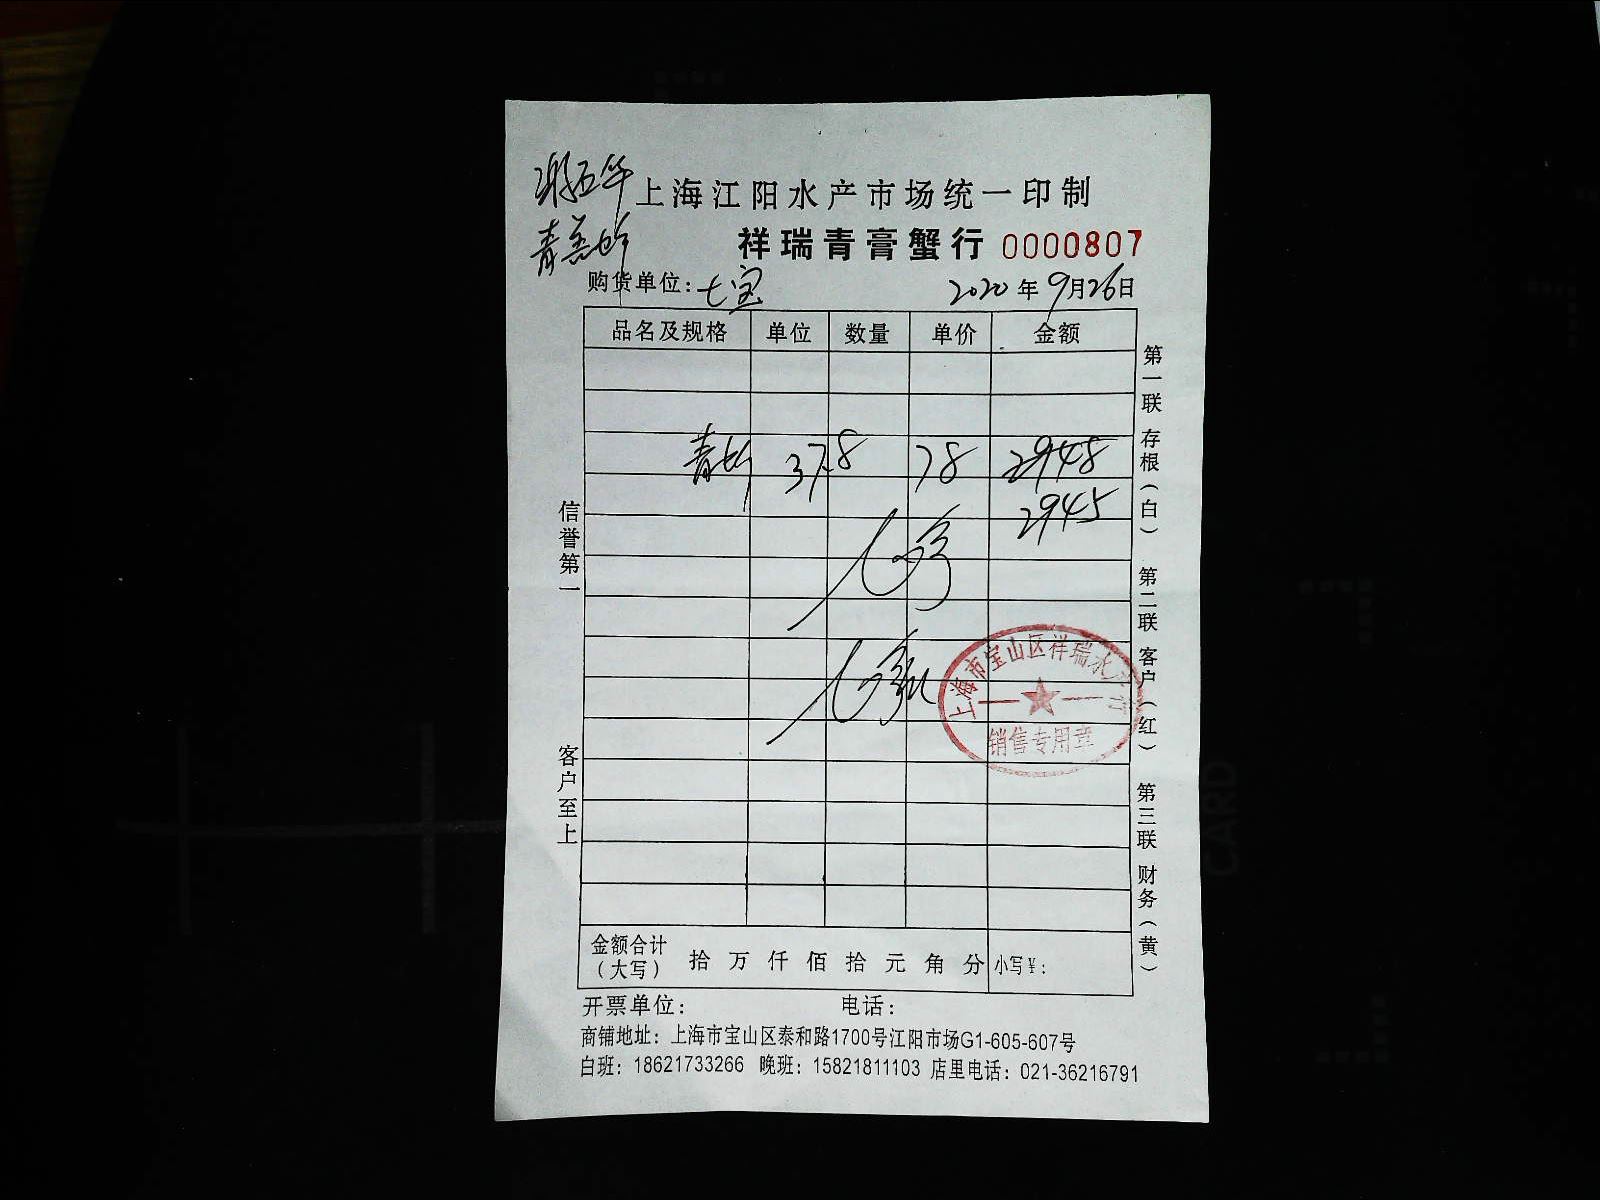 上海江阳水产市场统一印制
祥瑞青膏蟹行 0000807
购货单位：七宝 2020年9月26日
品名及规格 单位 数量 单价 金额
青 37.8 78 2948
2945
上海市宝山区祥瑞水产行
销售专用章
信誉第一
客户至上
第一联 存根（白） 第二联 客户（红） 第三联 财务（黄）
金额合计（大写） 拾 万 仟 佰 拾 元 角 分 小写¥：
开票单位： 电话：
商铺地址：上海市宝山区泰和路1700号江阳市场G1-605-607号
白班：18621733266 晚班：15821811103 店里电话：021-36216791